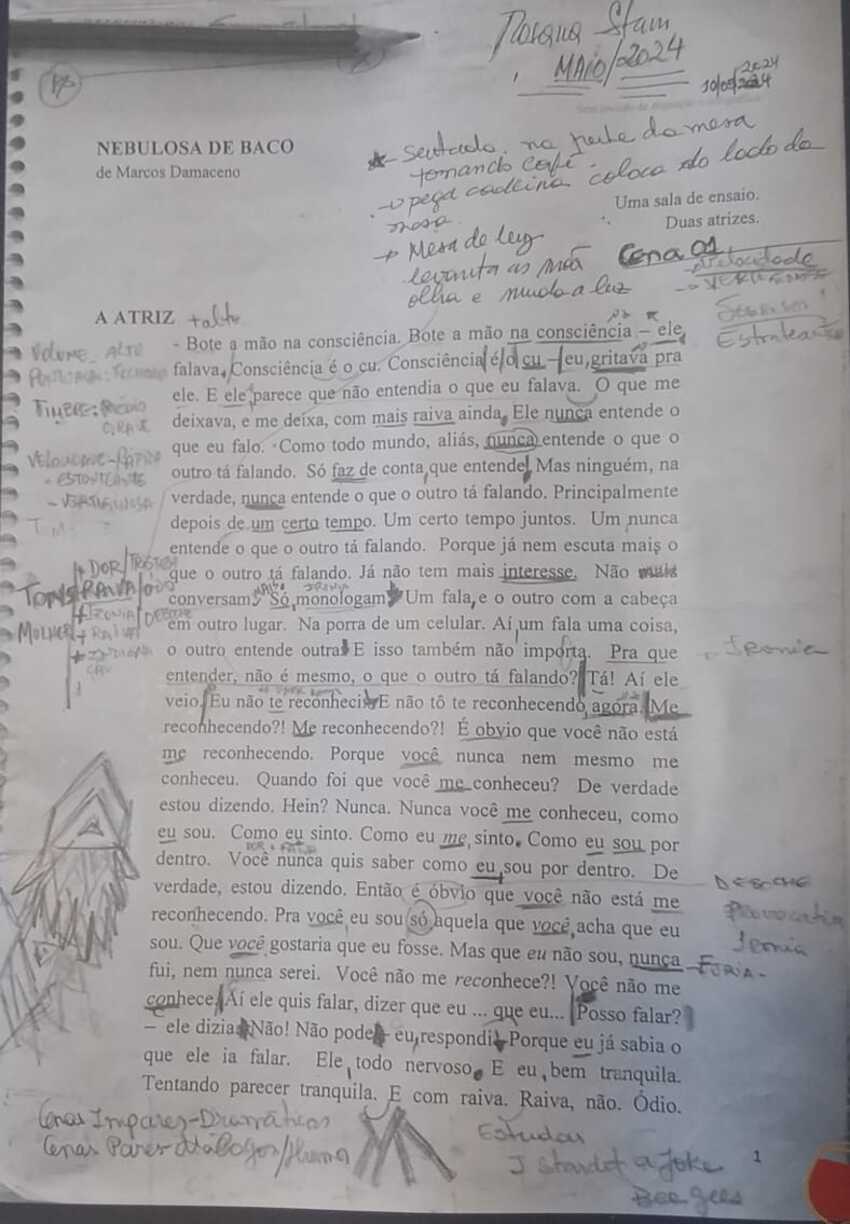 Rosana Stam
MAIO/2024
2024
10/05/2024
NEBULOSA DE BACO
de Marcos Damaceno
- Sentado. na parte da mesa
tomando café.
- pega cadeira coloca do lado da
mesa.
Uma sala de ensaio.
Duas atrizes.
→ Mesa de luz
levanta as mã
olha e muda a luz
Cena 01
- Velocidade
Estonteante
A ATRIZ
+alto
- Bote a mão na consciência. Bote a mão na consciência – ele
falava. Consciência é o cu. Consciência é o cu – eu gritava pra
ele. E ele parece que não entendia o que eu falava. O que me
deixava, e me deixa, com mais raiva ainda. Ele nunca entende o
que eu falo. Como todo mundo, aliás, nunca entende o que o
outro tá falando. Só faz de conta que entende. Mas ninguém, na
verdade, nunca entende o que o outro tá falando. Principalmente
depois de um certo tempo. Um certo tempo juntos. Um nunca
entende o que o outro tá falando. Porque já nem escuta mais o
que o outro tá falando. Já não tem mais interesse. Não mais
conversam. Só monologam. Um fala, e o outro com a cabeça
em outro lugar. Na porra de um celular. Aí um fala uma coisa,
o outro entende outra. E isso também não importa. Pra que
entender, não é mesmo, o que o outro tá falando? Tá! Aí ele
veio. Eu não te reconheci. E não tô te reconhecendo agora. Me
reconhecendo?! Me reconhecendo?! É obvio que você não está
me reconhecendo. Porque você nunca nem mesmo me
conheceu. Quando foi que você me conheceu? De verdade
estou dizendo. Hein? Nunca. Nunca você me conheceu, como
eu sou. Como eu sinto. Como eu me sinto. Como eu sou por
dentro. Você nunca quis saber como eu sou por dentro. De
verdade, estou dizendo. Então é óbvio que você não está me
reconhecendo. Pra você eu sou só aquela que você acha que eu
sou. Que você gostaria que eu fosse. Mas que eu não sou, nunca
fui, nem nunca serei. Você não me reconhece?! Você não me
conhece. Aí ele quis falar, dizer que eu ... que eu... Posso falar?
– ele dizia. Não! Não pode – eu respondi. Porque eu já sabia o
que ele ia falar. Ele todo nervoso. E eu bem tranquila.
Tentando parecer tranquila. E com raiva. Raiva, não. Ódio.
Volume - Alto
Timbre: Médio
Grave
Velocidade - Rápida
- Estonteante
- Vertiginosa
+ DOR/
Tons RAIVA/
+ IRONIA/DEBOCHE
Mulher + RAIVA
Ironia
DEBOCHE
Provocativa
Ironia
FÚRIA -
Cenas Ímpares - Dramáticas
Cenas Pares Diálogos/Humor
Estudar
I Started a Joke
Bee Gees
1